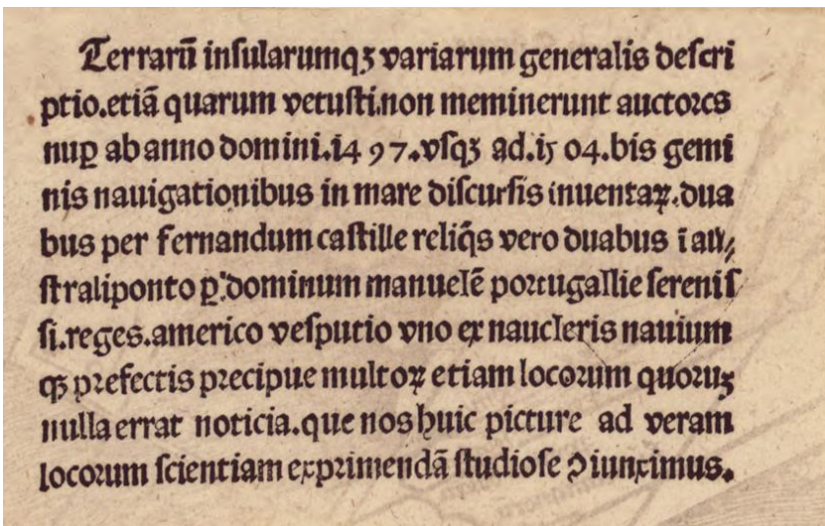 Terrarū insularumqꝫ variarum generalis descri
ptio.etiā quarum vetusti.non meminerunt auctores
nuꝑ ab anno domini.i497.vsqꝫ ad.i504.bis gemi
nis nauigationibus in mare discursis inuentaꝝ.dua
bus per fernandum castille reliq̄s vero duabus ī au⸗
straliponto ꝑ.dominum manuelē portugallie sereniſ
si.reges.americo vesputio vno ex naucleris nauium
qꝫ prefectis precipue multoꝝ etiam locorum quoruꝫ
nulla errat noticia.que nos huic picture ad veram
locorum scientiam exprimendā studiose ꝯiunximus.